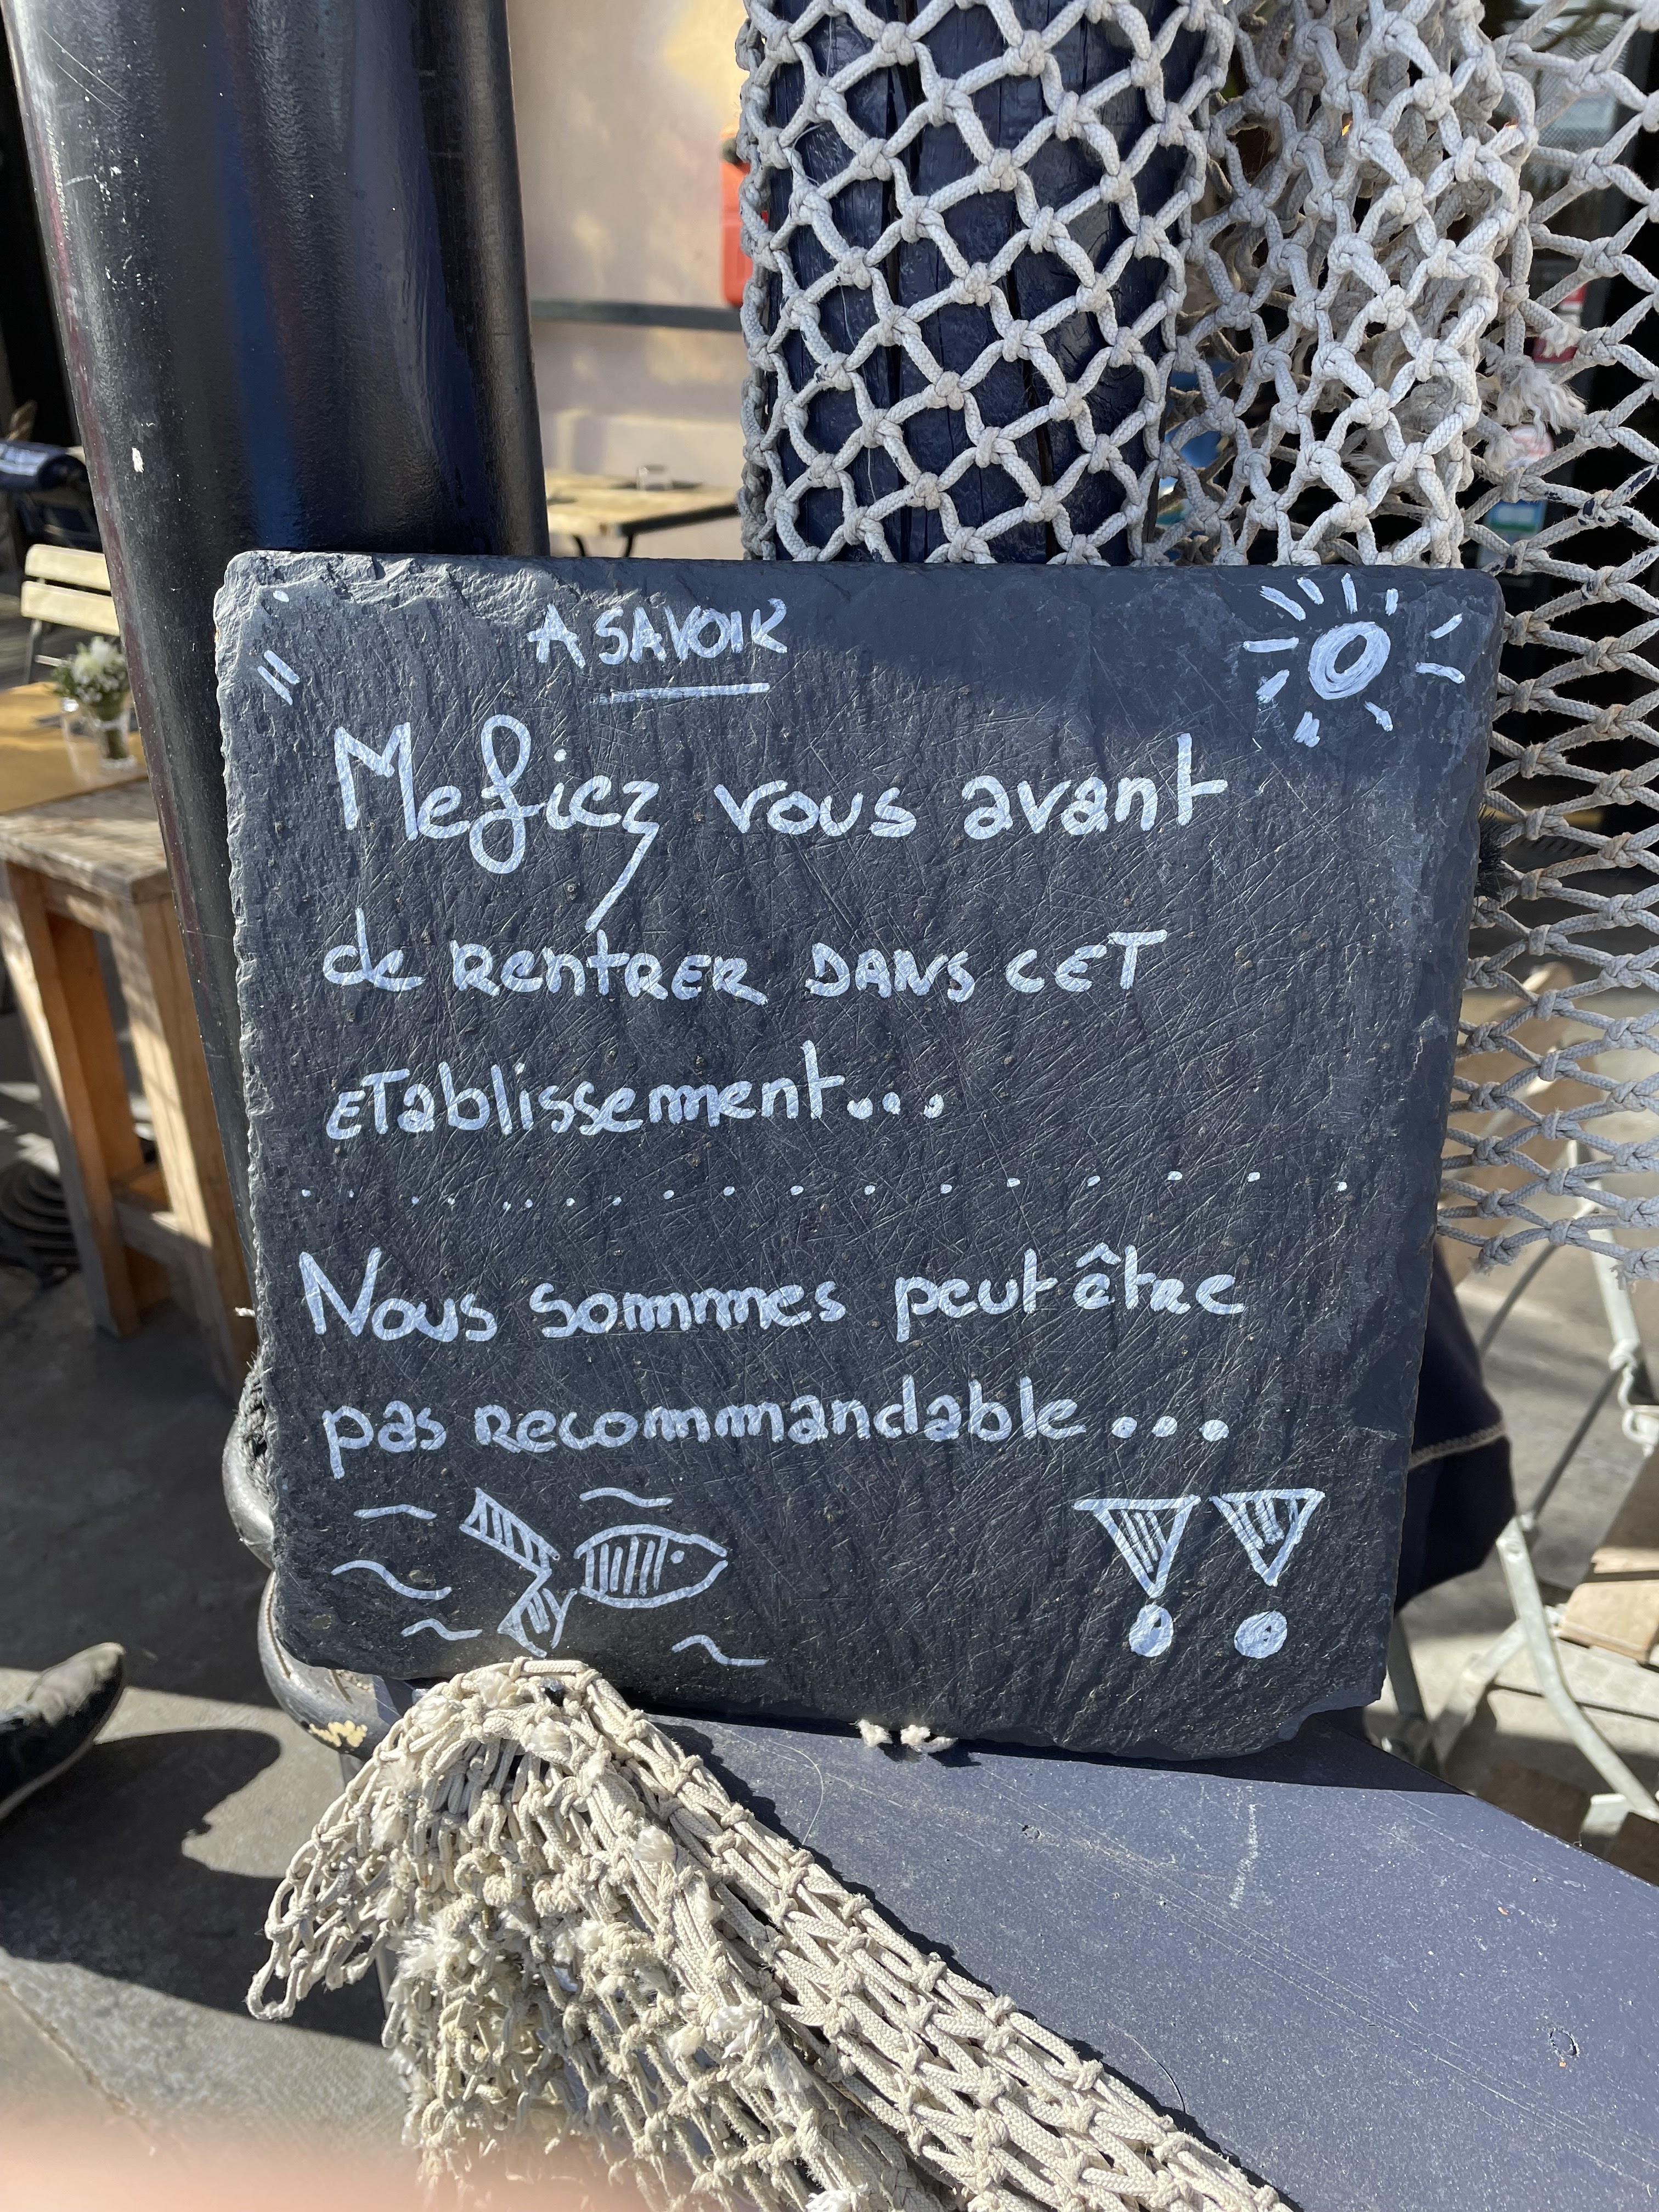 A SAVOIR
Mefiez vous avant
de RentRER DANS CET
ETablissement...
Nous sommes peut être
pas Recommandable...
!!